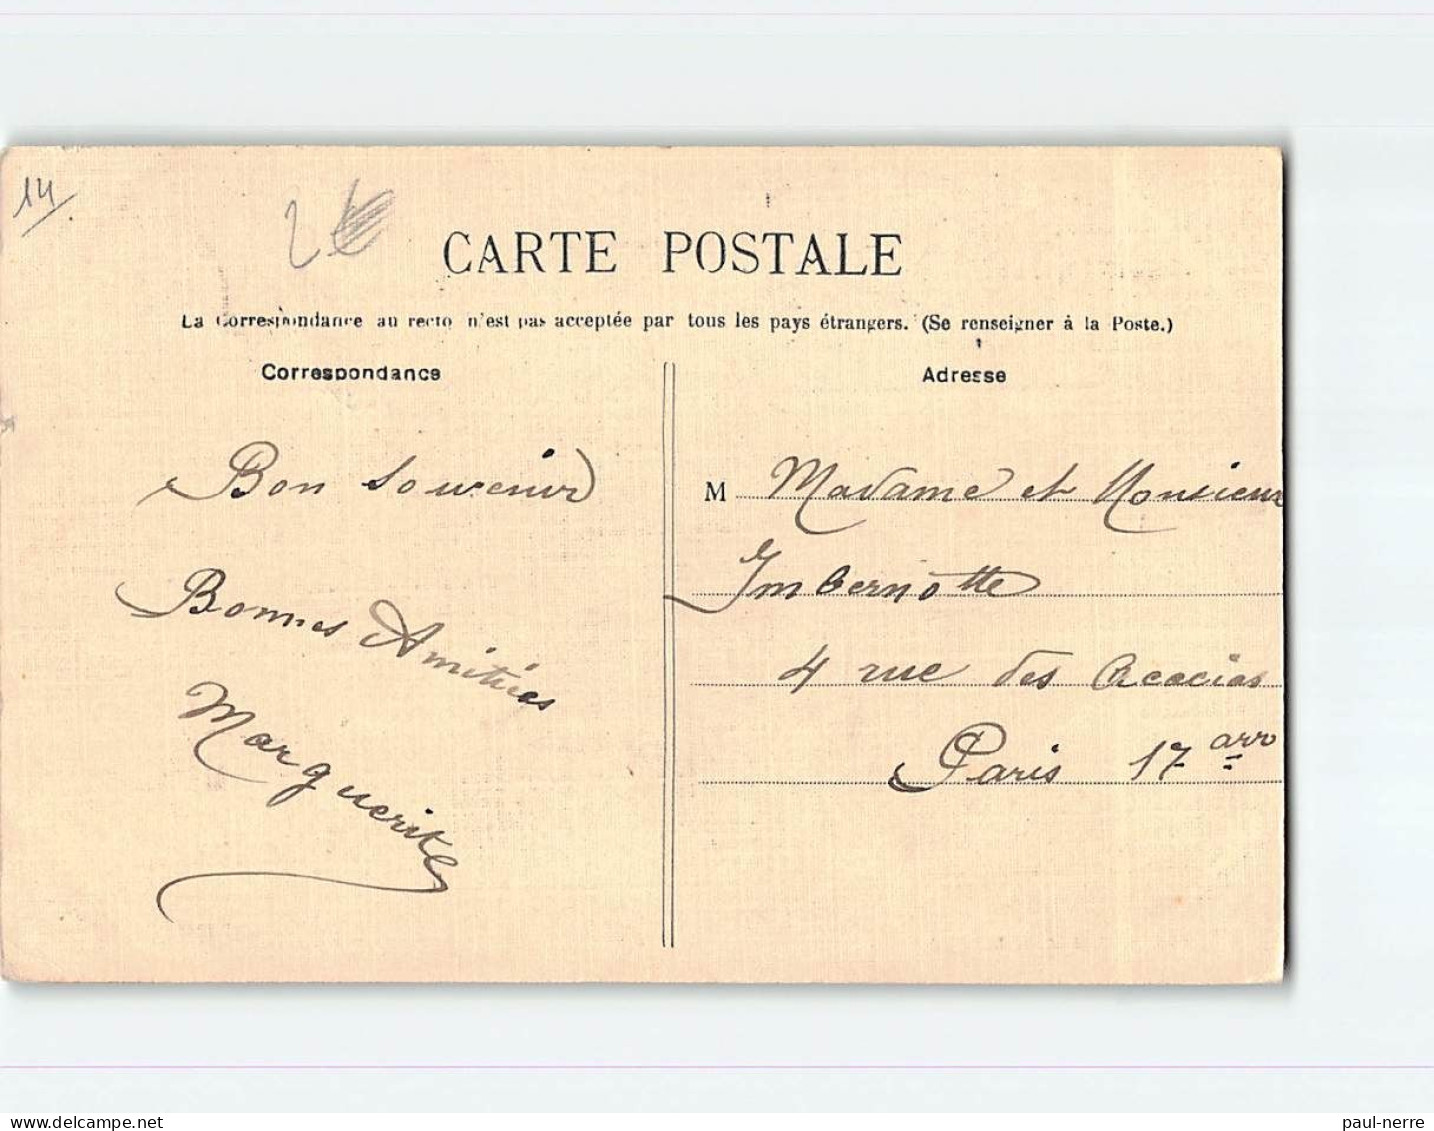 14
2€
CARTE POSTALE
La Correspondance au recto n'est pas acceptée par tous les pays étrangers. (Se renseigner à la Poste.)
Correspondance
Bon Souvenir
Bonnes Amitiés
Marguerite
Adresse
M Madame et Monsieur
Imbernotte
4 rue des Acacias
Paris 17 arr
delcampe.net
paul-nerre